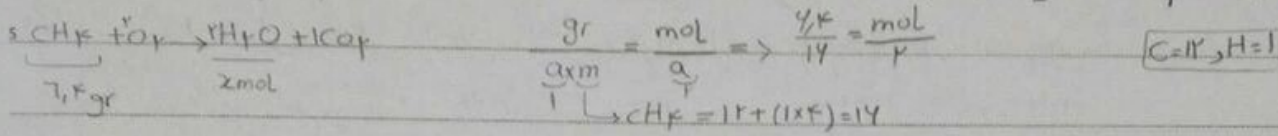 CH۴ + ۲O۲ → ۲H۲O + 1CO۲
۶,۴ gr
xmol
gr / a×m = mol / a => ۶,۴ / ۱۶ = mol / ۲
1 ۲
→ CH۴ = ۱۲ + (۱×۴) = ۱۶
C=۱۲, H=1